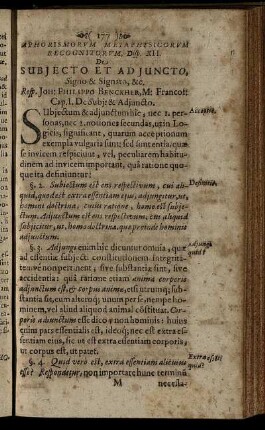 ( 177 )
APHORISMORVM METAPHYSICORVM
RECOGNITORVM, Disp. XII.
De
SUBJECTO ET ADJUNCTO,
Signo & Signato, &c.
Resp. JOH: PHILIPPO BENCKHER, M: Francof:
Cap. I. De Subj: & Adjuncto.
SUbjectum & adjunctum hîc, nec 1. per-
sonas, nec 2. notiones secundas, ut in Lo-
gicis, significant, quarum acceptionum
exempla vulgaria sunt: sed sunt entia, quæ
se invicem respiciunt, vel, peculiarem habitu-
dinem ad invicem important, quâ ratione quo-
que ita definiuntur:
Acceptio.
§. 2. Subiectum est ens respectivum, cui ali-
quid, quod est extra essentiam ejus, adjungitur, ut,
homo est doctrina, cujus ratione, homo est subje-
ctum. Adjunctum est ens respectivum, qm aliquid
subjicitur, ut, homo doctrina, quæ proinde hominis
adjunctum.
Definitio.
§. 3. Adjungi enim hic dicuntur omnia, quæ
ad essentiæ subjecti constitutionem integrita-
temvè non pertinent, sive substantiæ sint, sive
accidentia: quâ ratione etiam anima corporis
adjunctum est, & corpus animæ, etsi utrumq; sub-
stantia sit, cum alterutrq; unum per se, nempè ho-
minem, vel aliud aliquod animal costituat. Cor-
poris adjunctum esse dico, non hominis: huius
enim pars essentialis est, ideoq; nec est extra es-
sentiam eius, sic ut est extra essentiam corporis,
ut corpus est, ut patet.
Adjungi
quid?
§. 4. Quid verò est, extra essentiam alicuius
esse? Respondetur, non importare hunc terminū
Extra esse
quid?
M
necessa-